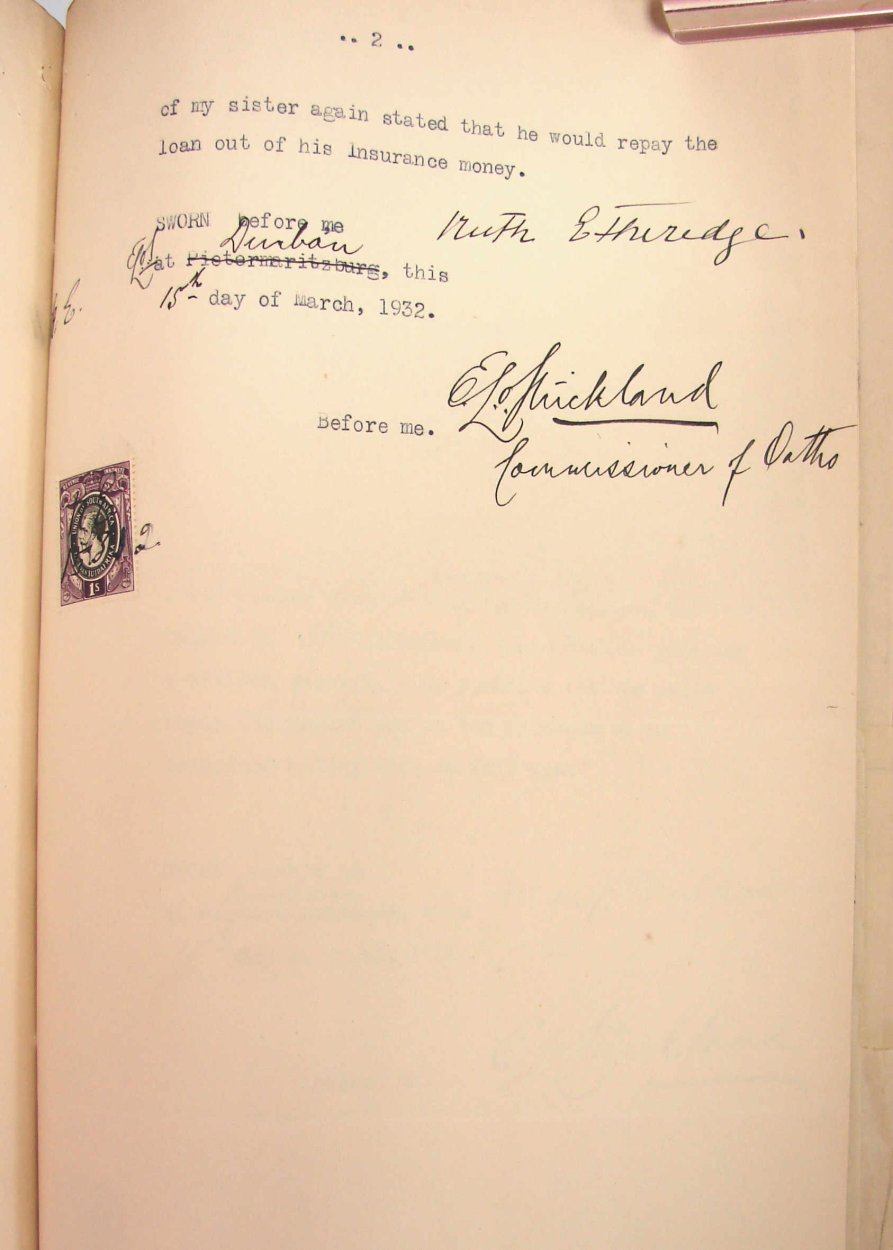 .. 2 ..
of my sister again stated that he would repay the
loan out of his insurance money.
SWORN before me
Durban
at Pietermaritzburg, this
15th day of March, 1932.
Ruth Etheredge.
Before me.
E.L.O. Strickland
Commissioner of Oaths
REVENUE INKOMSTE
UNION OF SOUTH AFRICA
1s